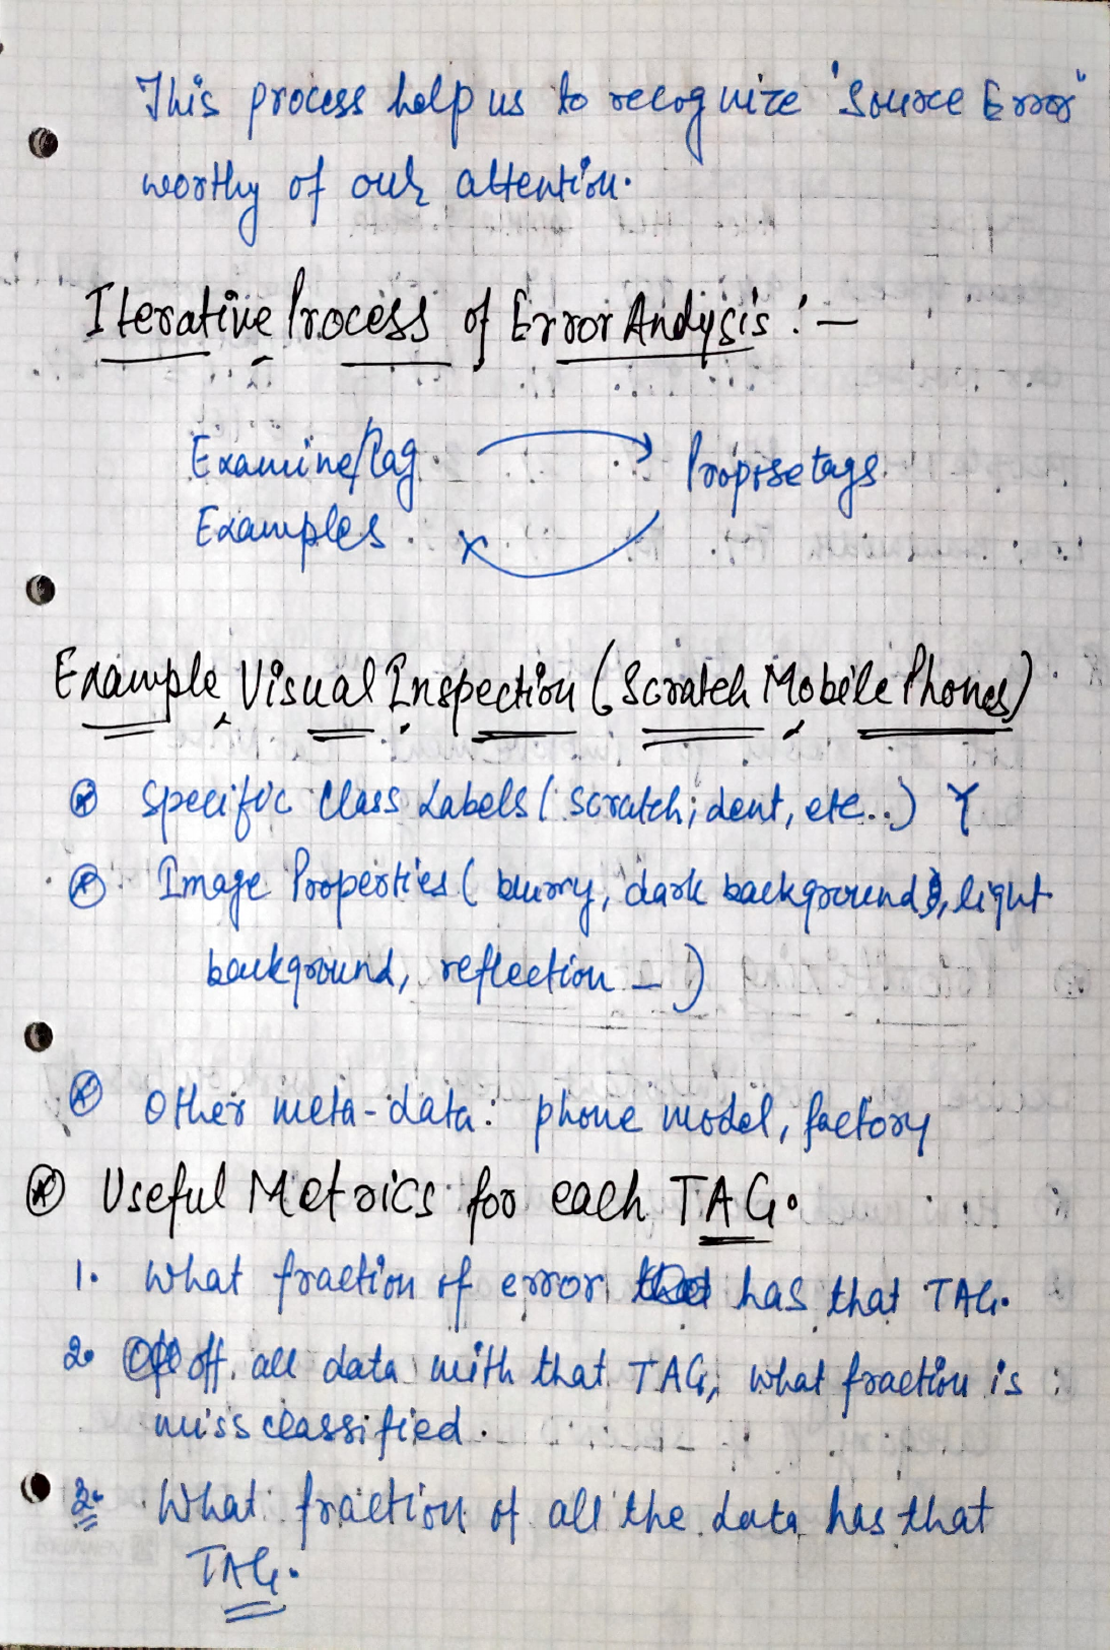 This process help us to recognize "Source Error"
worthy of our attention.
Iterative Process of Error Analysis :-
Examine/Tag
Examples
Propose tags
Example Visual Inspection (Scratch Mobile Phones)
Specific Class Labels (scratch, dent, etc..) Y
Image Properties (blurry, dark background, light
background, reflection _ )
Other meta-data: phone model, factory
Useful Metrics for each TAG.
1. What fraction of error has that TAG.
2. off all data with that TAG, what fraction is
miss classified.
3. What fraction of all the data has that
TAG.